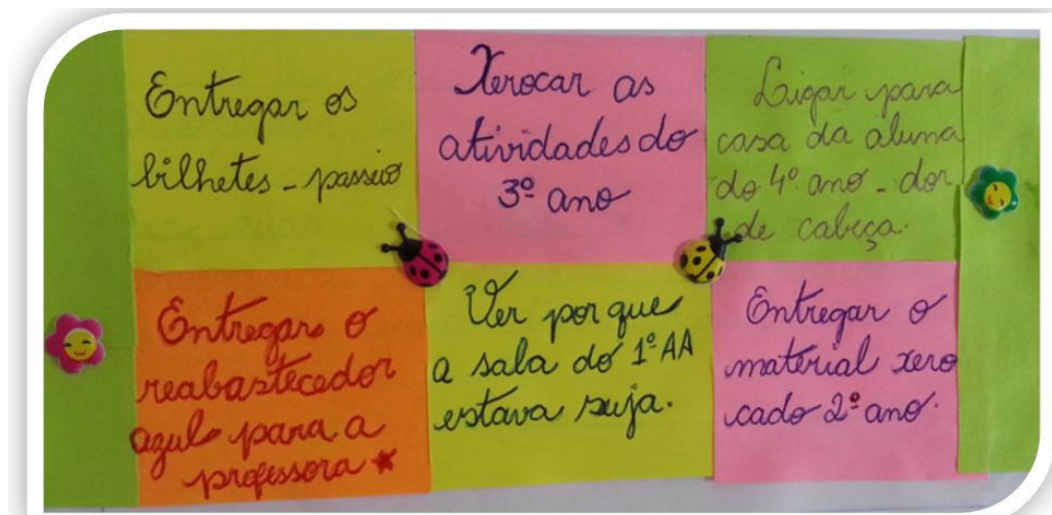 Entregar os
bilhetes - passeio
Xerocar as
atividades do
3º ano
Ligar para
casa da aluna
do 4º ano - dor
de cabeça.
Entregar o
reabastecedor
azul para a
professora *
Ver por que
a sala do 1º AA
estava suja.
Entregar o
material xero
cado 2º ano.